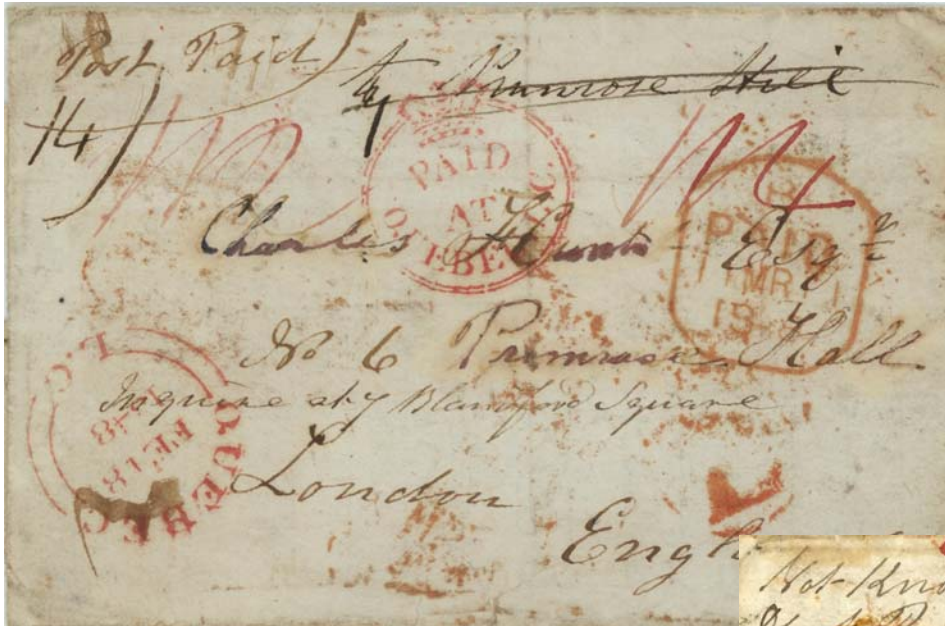 Post Paid
1/4
Primrose Hill
PAID
AT
QUEBEC
PAID
MR
Charles Esqr
No 6 Primrose Hall
Inquire at 7 Blandford Square
London
QUEBEC
L.C
FE 18
Engl
Not Kno